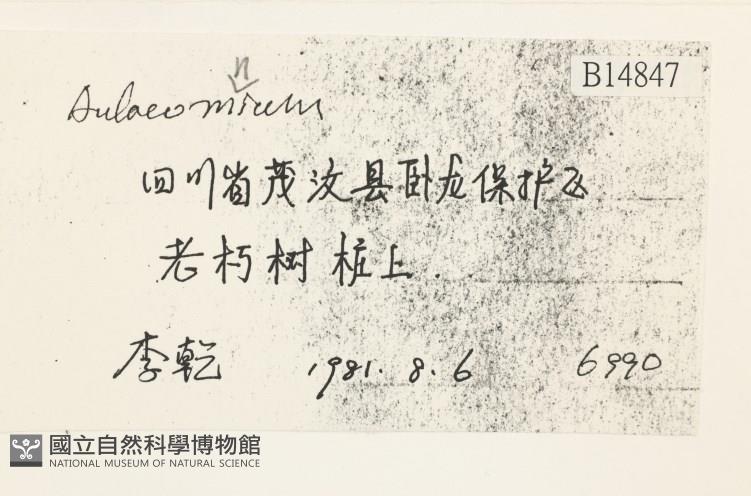 B14847
n
Aulacomicum
四川省茂汶县卧龙保护区
老朽树桩上.
李乾 1981. 8. 6 6990
國立自然科學博物館
NATIONAL MUSEUM OF NATURAL SCIENCE